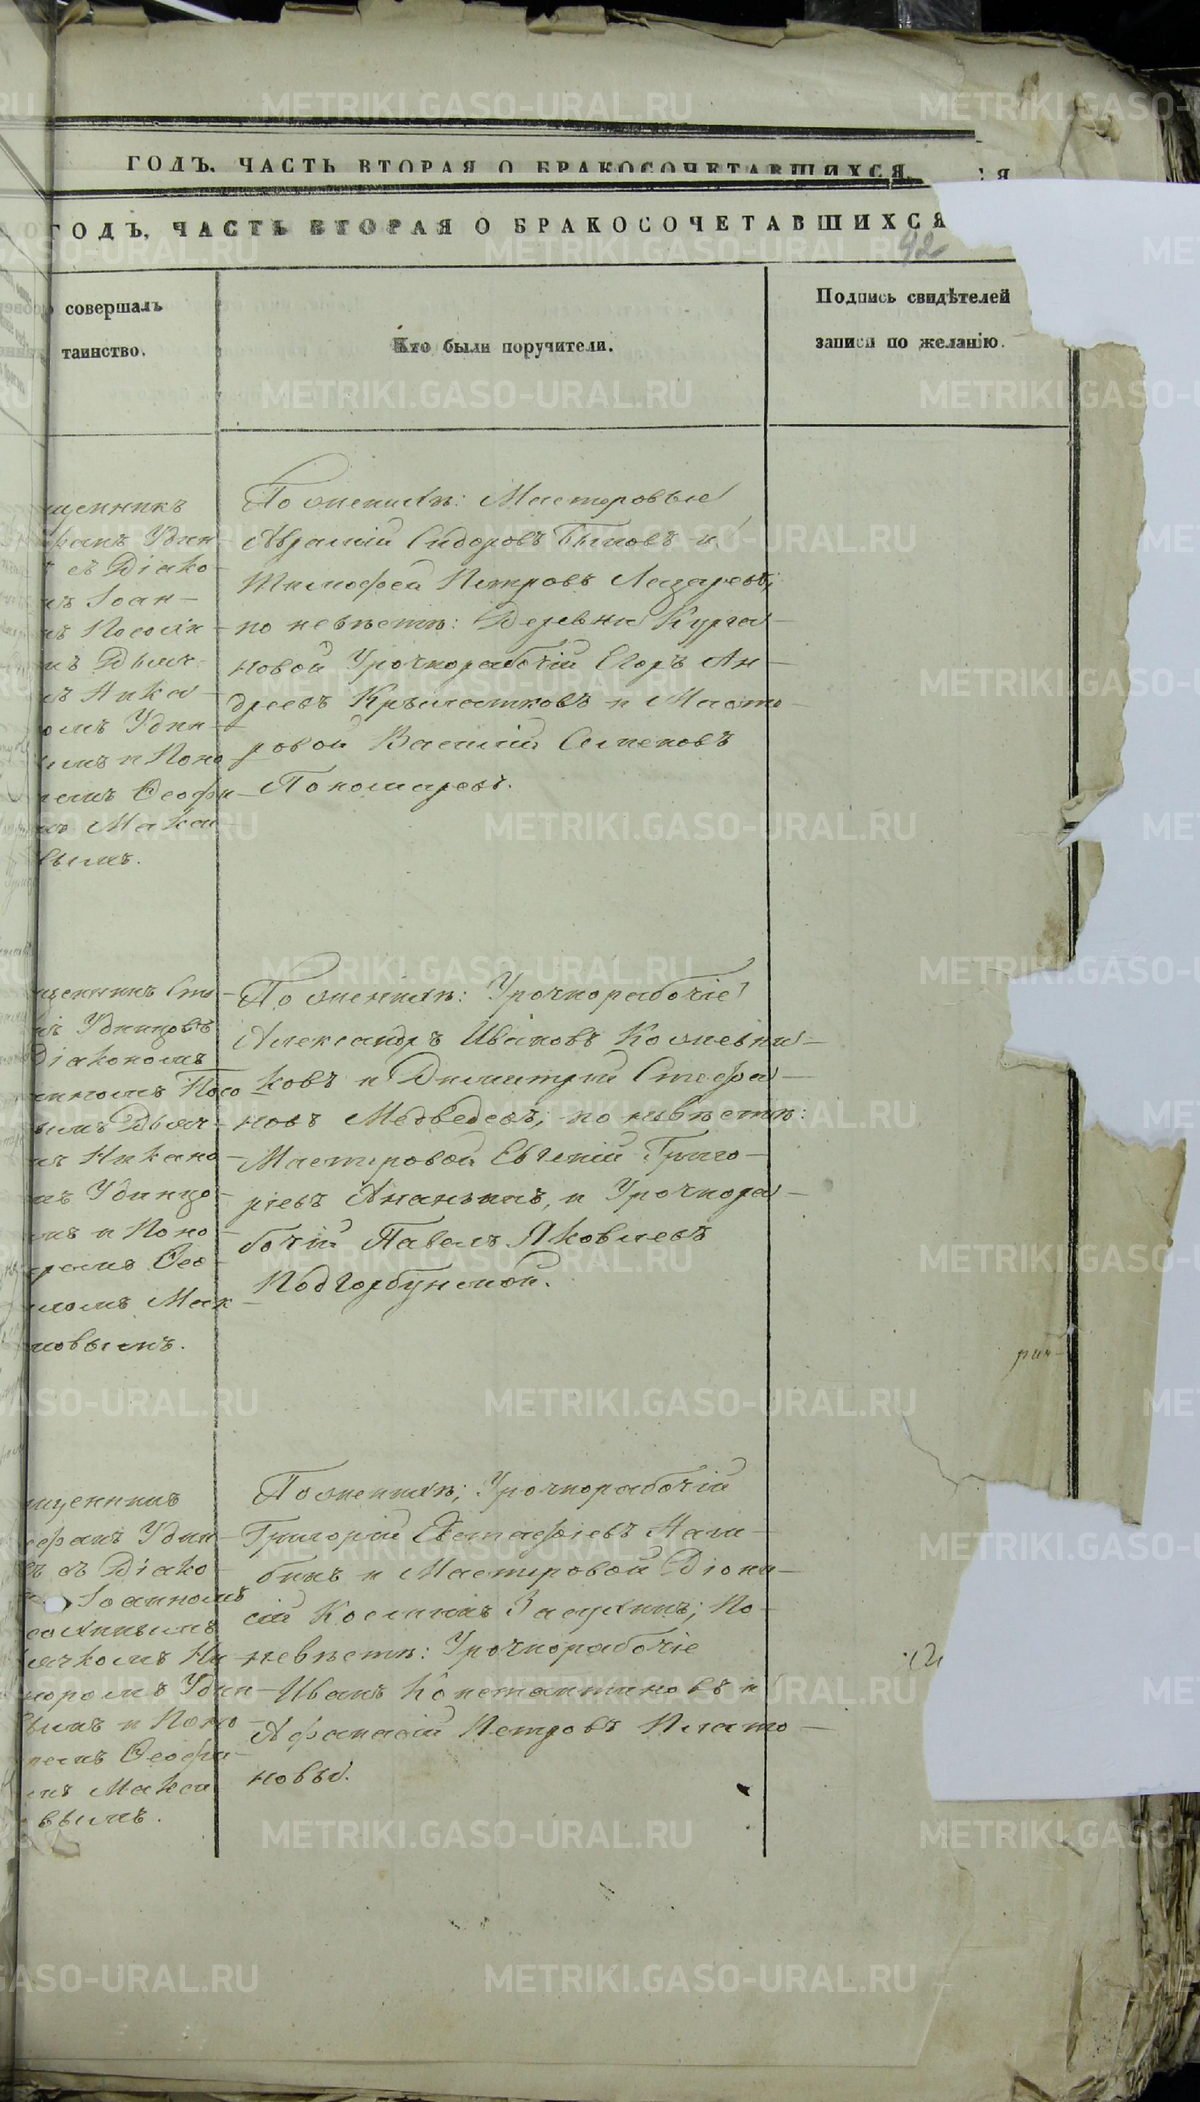 ГОДЪ, ЧАСТЬ ВТОРАЯ О БРАКОСОЧЕТАВШИХСЯ.
ГОДЪ, ЧАСТЬ ВТОРАЯ О БРАКОСОЧЕТАВШИХСЯ
92
совершалъ
таинство.
Кто были поручители.
Подпись свидѣтелей
записи по желанію.
щенникъ
фанъ Удин-
съ Діако-
мъ Іоан-
мъ Посохи-
мъ Дьяч-
мъ Ника-
омъ Удин-
ымъ и Поно
емъ Ѳеофи-
мъ Макси-
вымъ.
По женихѣ: Мастеровые
Аврамій Сидоровъ Быковъ и
Тимофей Петровъ Лазаревъ;
по невѣстѣ: Деревни Курга-
новой Урочнорабочій Егоръ Ан-
дреевъ Крылатковъ и Масте-
ровой Василій Семеновъ
Пономаревъ.
щенникъ Сте-
Удинцовъ
Діакономъ
нномъ Посо
ымъ Дьяч-
мъ Никано-
мъ Удинцо-
мъ и Поно-
аремъ Ѳео-
ломъ Мак-
мовымъ.
По женихѣ: Урочнорабочіе
Александръ Ивановъ Кожевни-
ковъ и Димитрій Стефа-
новъ Медведевъ; по невѣстѣ:
Мастеровой Евгеній Григо-
рьевъ Ананьинъ, и Урочнора-
бочій Павелъ Яковлевъ
Подгорбунской.
рин-
щенникъ
ефанъ Удин-
съ Діако
Іоанномъ
сохинымъ
ячкомъ Ни-
норомъ Удин-
вымъ и Поно-
ремъ Ѳеофи-
мъ Макси
вымъ.
По женихѣ; Урочнорабочій
Григорій Евстафіевъ Наги-
бинъ и Мастеровой Діони-
сій Косминъ Засухинъ; По-
невѣстѣ: Урочнорабочіе
Иванъ Константиновъ и
Афанасій Петровъ Плато-
новы.
METRIKI.GASO-URAL.RU